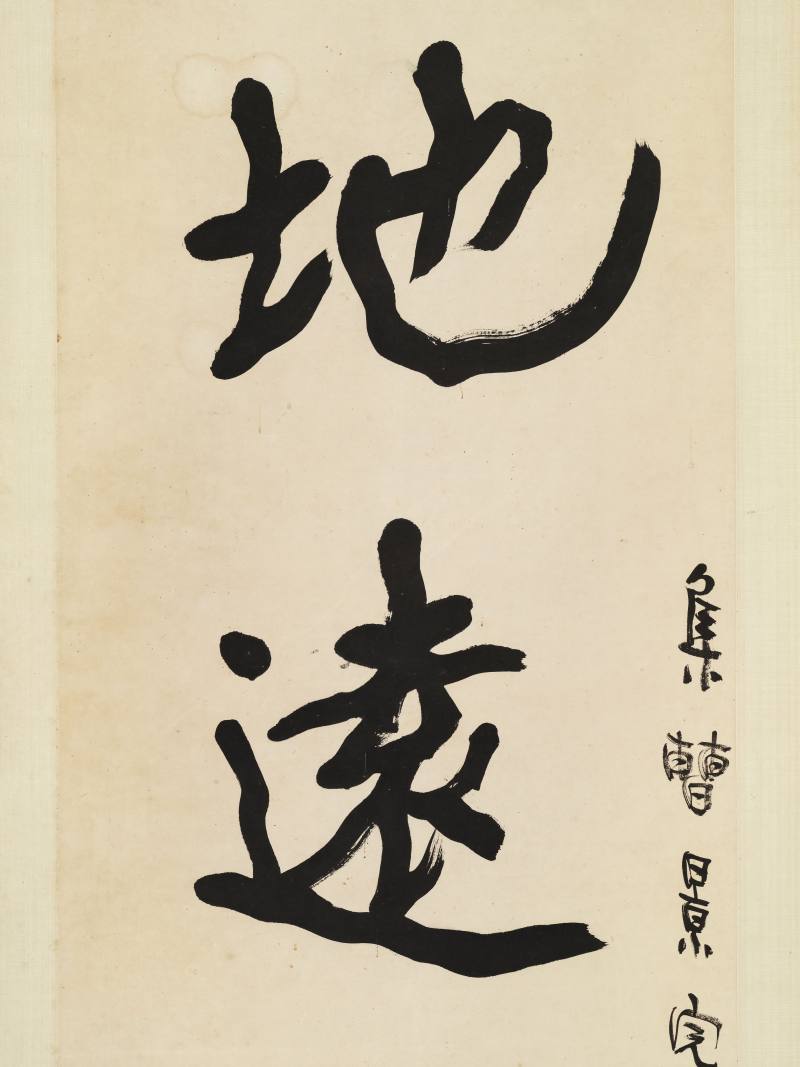 集曹景完
地遠